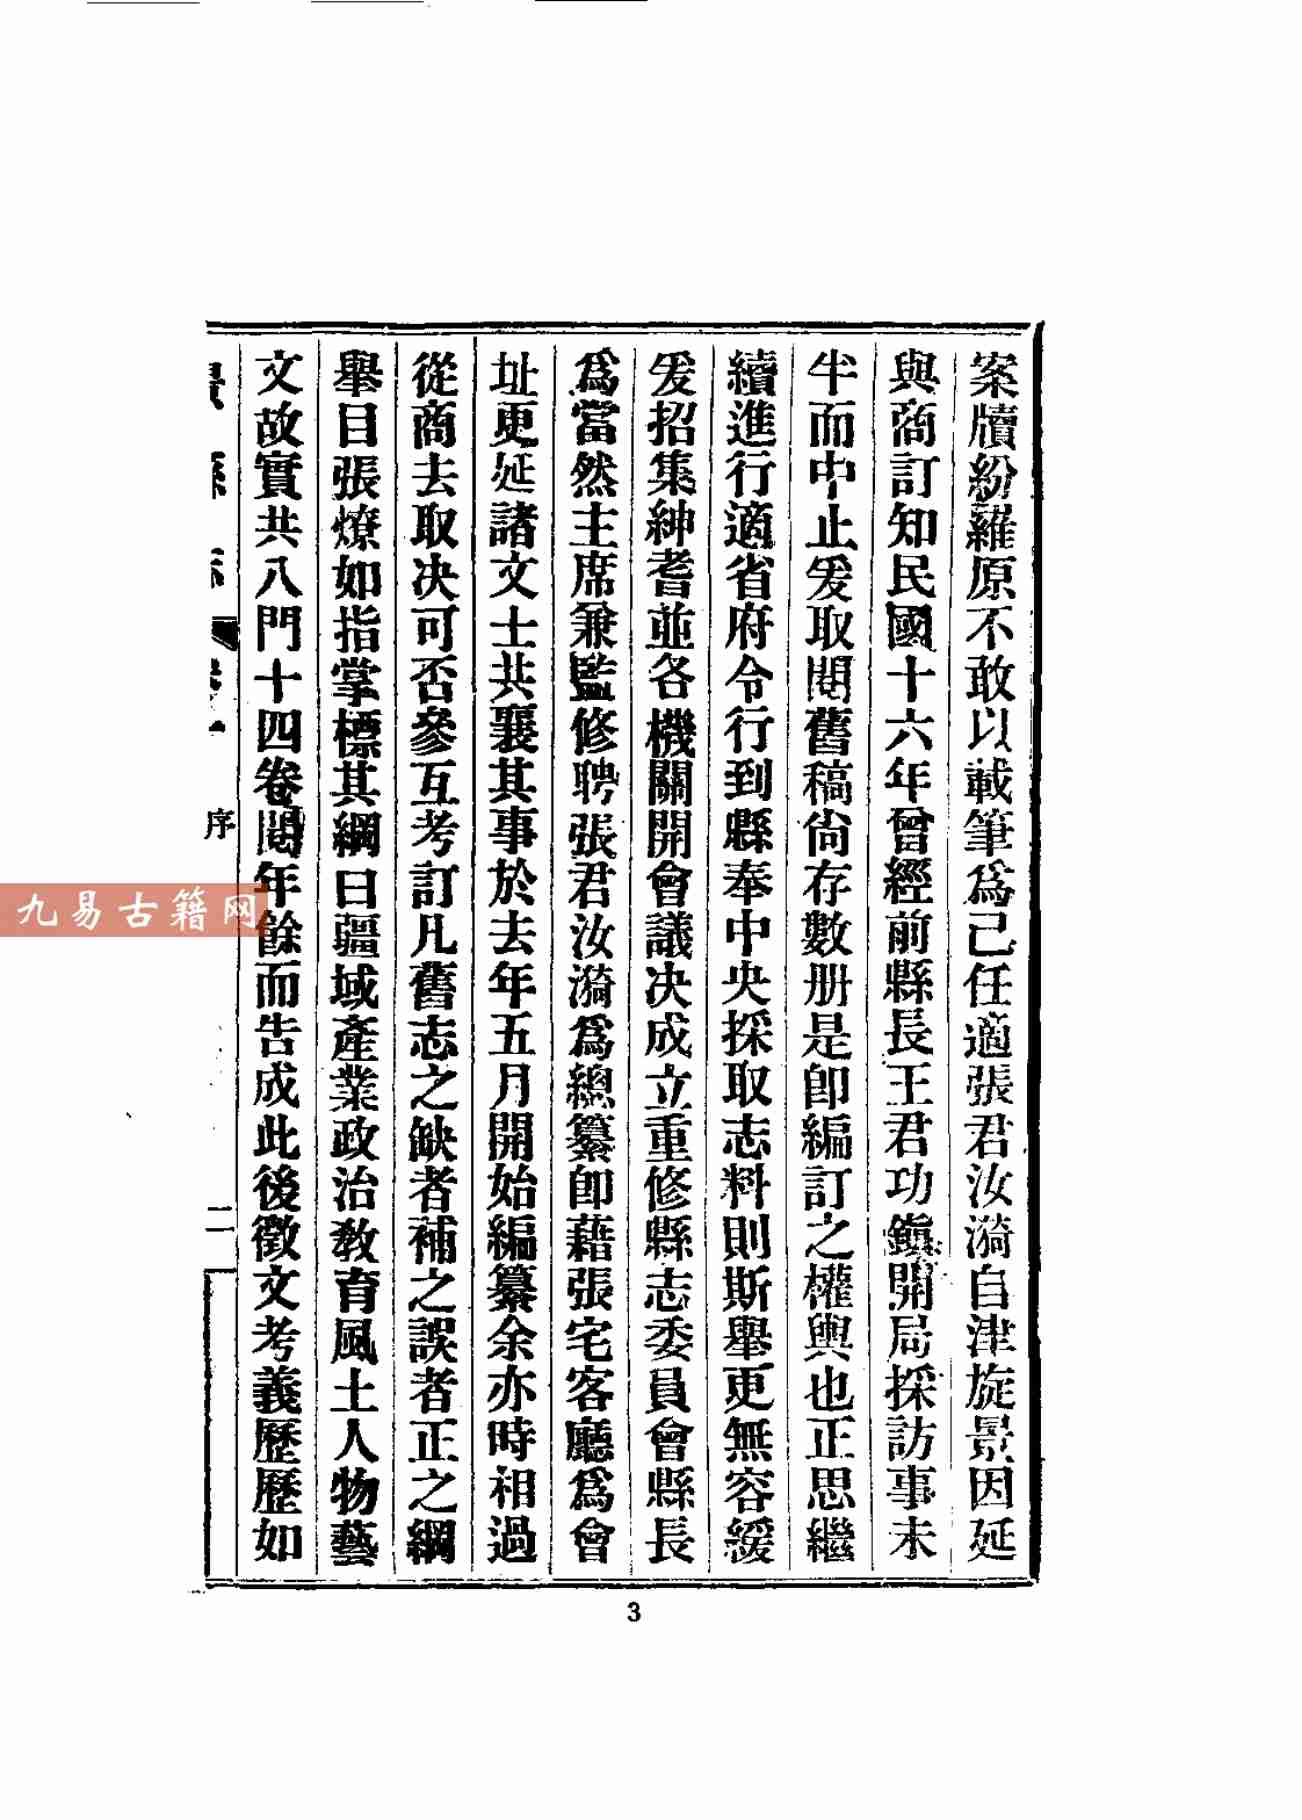 案牘紛羅原不敢以載筆爲己任適張君汝漪自津旋景因延
與商訂知民國十六年曾經前縣長王君功鎭開局採訪事未
半而中止爰取閱舊稿尙存數册是卽編訂之權輿也正思繼
續進行適省府令行到縣奉中央採取志料則斯舉更無容緩
爰招集紳耆並各機關開會議決成立重修縣志委員會縣長
爲當然主席兼監修聘張君汝漪爲總纂卽藉張宅客廳爲會
址更延諸文士共襄其事於去年五月開始編纂余亦時相過
從商去取决可否參互考訂凡舊志之缺者補之誤者正之綱
舉目張燎如指掌標其綱曰疆域產業政治教育風土人物藝
文故實共八門十四卷閱年餘而告成此後徵文考義歷歷如
景縣志 卷一 序 二
3
九易古籍网